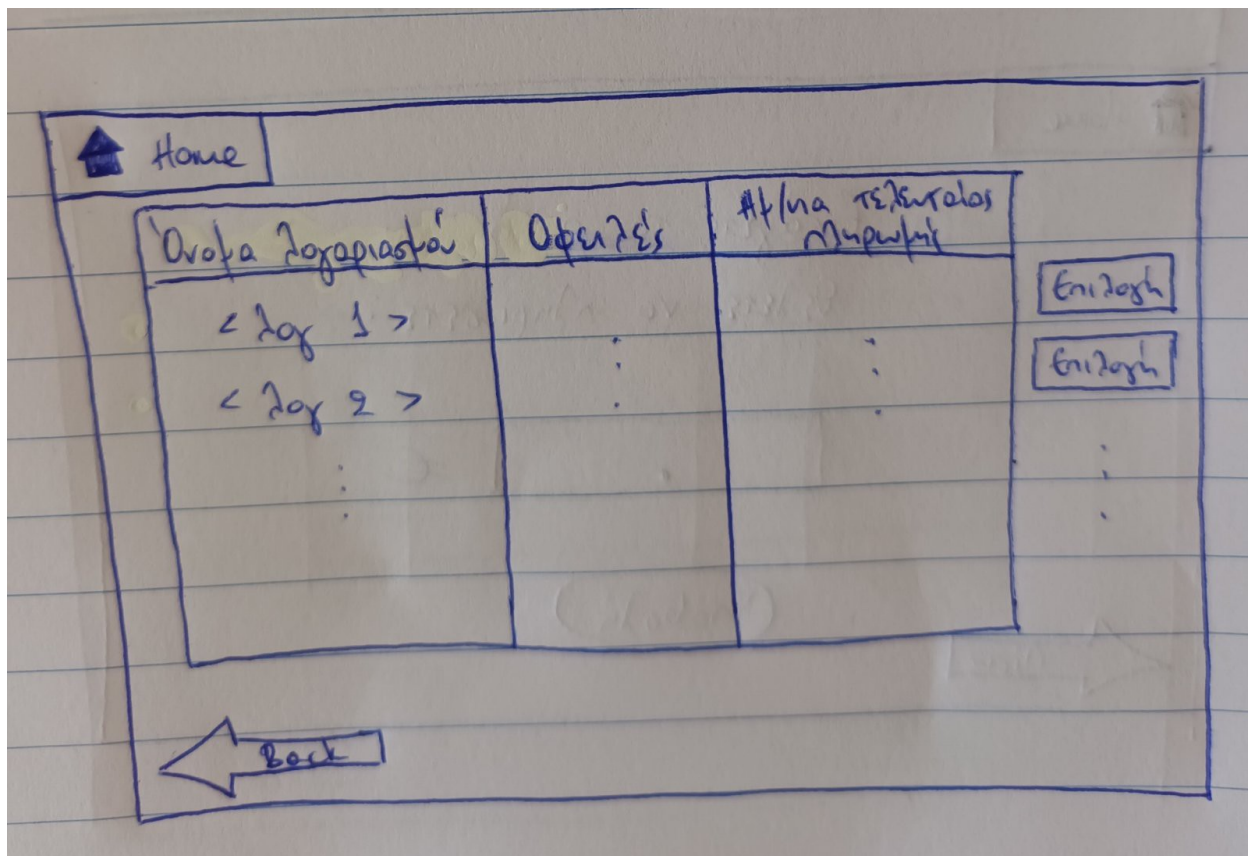 Home
Όνομα λογαριασμού
Οφειλές
Ημ/νια τελευταίας
πληρωμής
< λογ 1 >
Επιλογή
< λογ 2 >
Επιλογή
Back